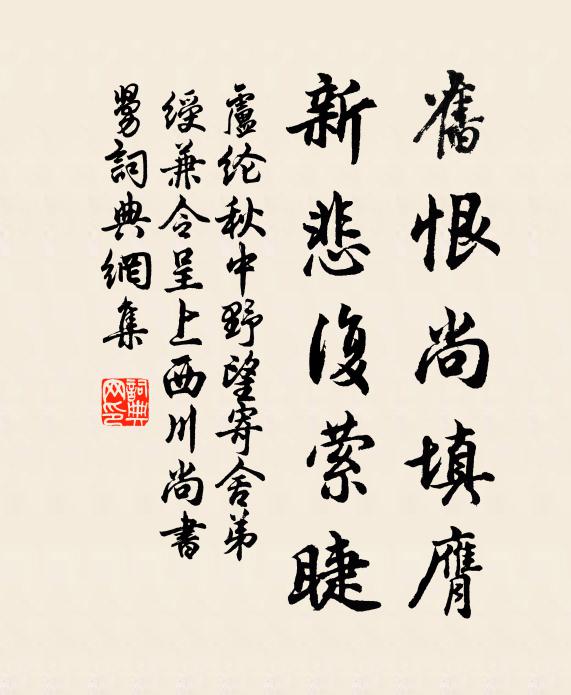 舊恨尚填膺
新悲復縈睫
盧纶秋中野望寄舍弟
綬兼令呈上西川尚書
舅詞典網集
詞典
网印